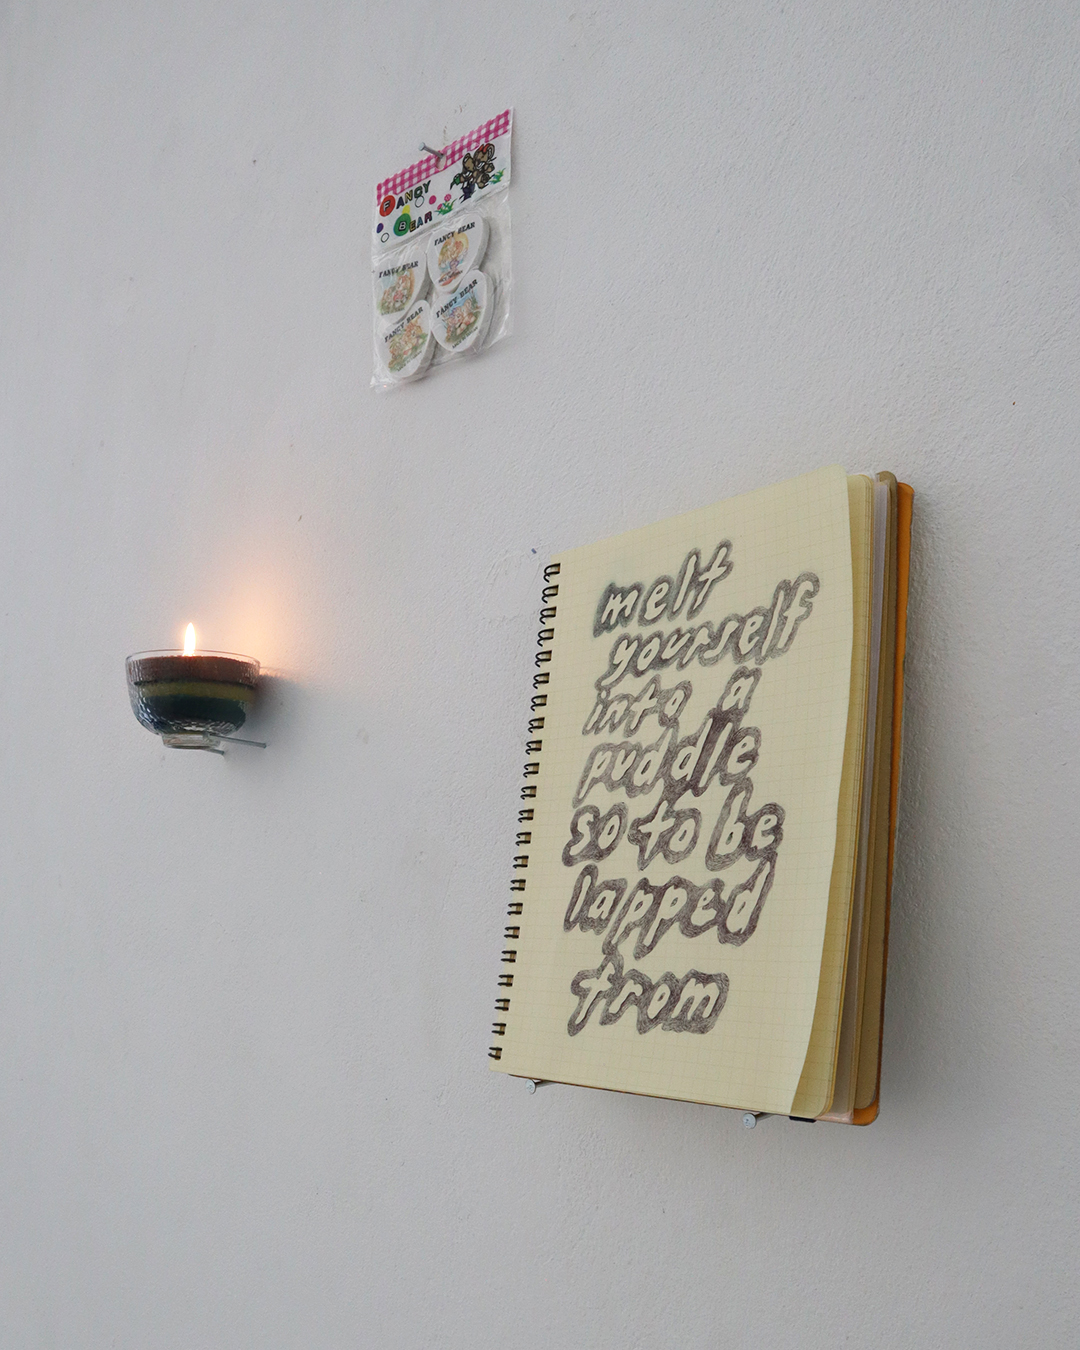 FANCY
BEAR
FANCY BEAR
FANCY BEAR
FANCY BEAR
FANCY BEAR
melt
yourself
into a
puddle
so to be
lapped
from